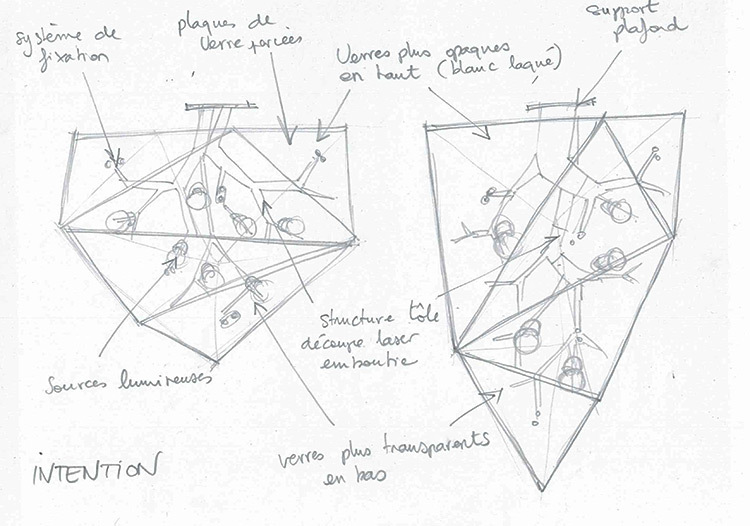 système de
fixation
plaques de
verre percées
Verres plus opaques
en haut (blanc laqué)
support
plafond
structure tôle
découpe laser
emboutie
sources lumineuses
verres plus transparents
en bas
INTENTION